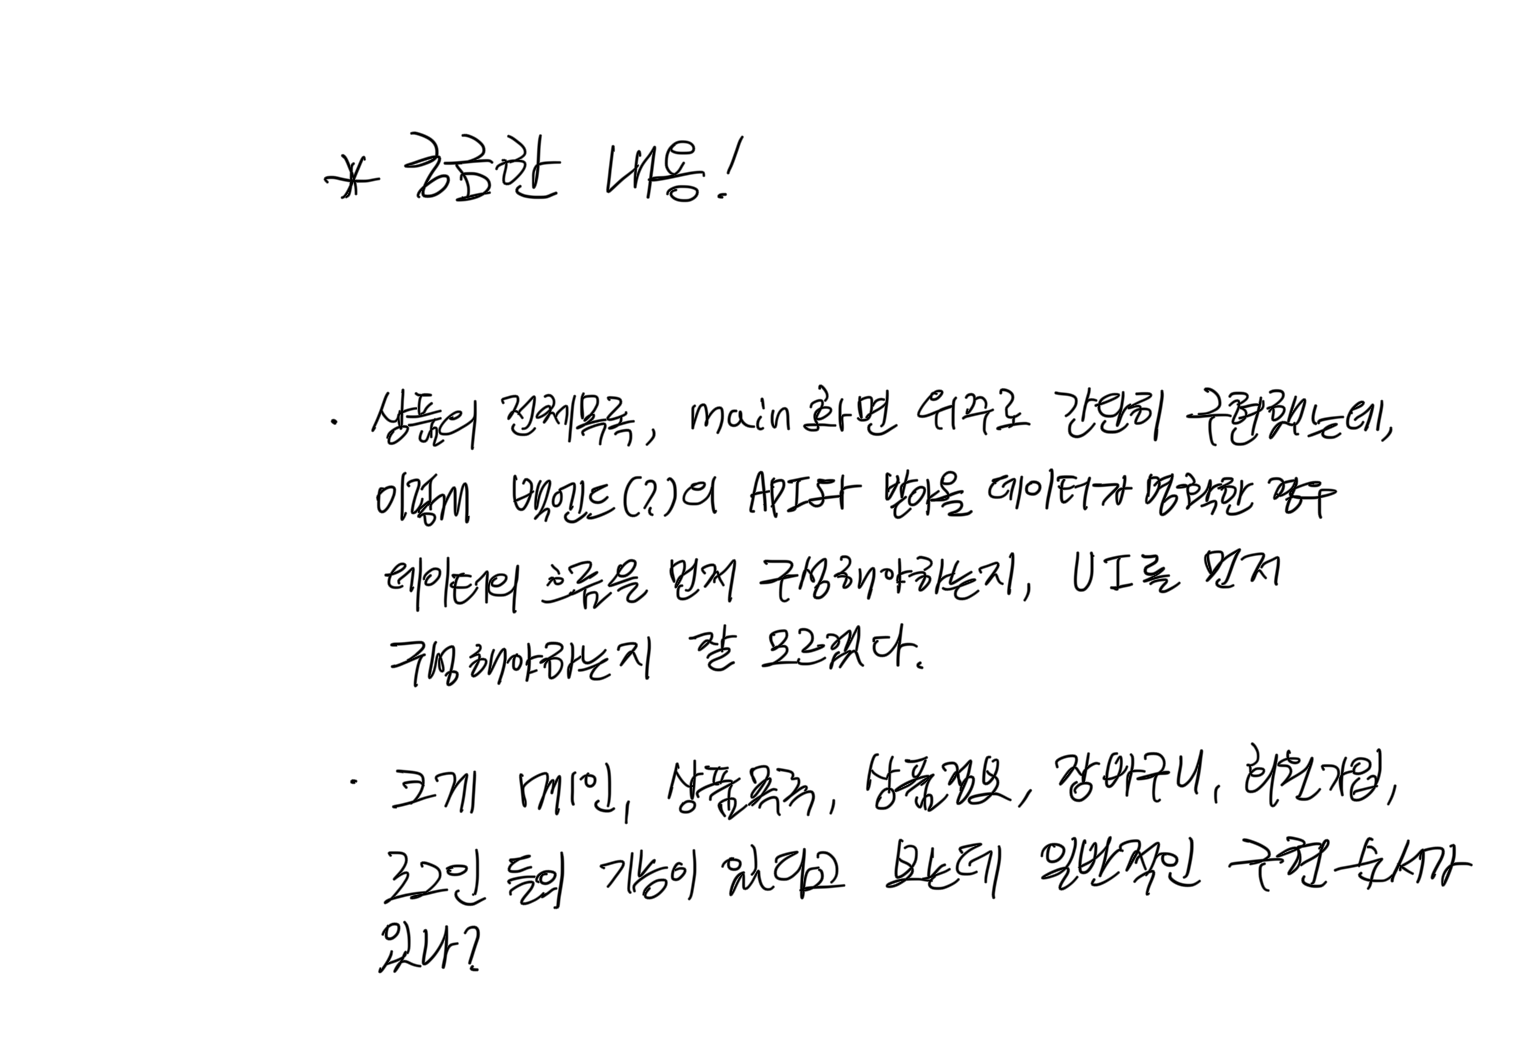 * 궁금한 내용!
· 상품의 전체목록, main화면 위주로 간단히 구현했는데,
이렇게 백엔드(?)의 API와 받아올 데이터가 명확한 경우
데이터의 흐름을 먼저 구성해야하는지, UI를 먼저
구성해야하는지 잘 모르겠다.
· 크게 메인, 상품목록, 상품정보, 장바구니, 회원가입,
로그인 등의 기능이 있다고 보는데 일반적인 구현 순서가
있나?